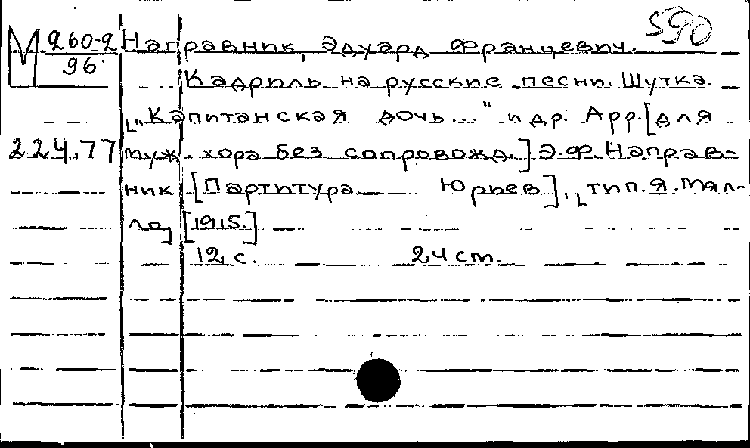 590
М 260-2 Направник, Эдуард Францевич.
96
Кадриль на русские песни. Шутка.
["Капитанская дочь..." и др. Арр. [для
224.77 муж. хора без сопровожд.] Э.Ф. Направ-
ник. [Партитура Юрьев], [тип. Я. Мял-
ло] [1915.]
12 с. 24 ст.